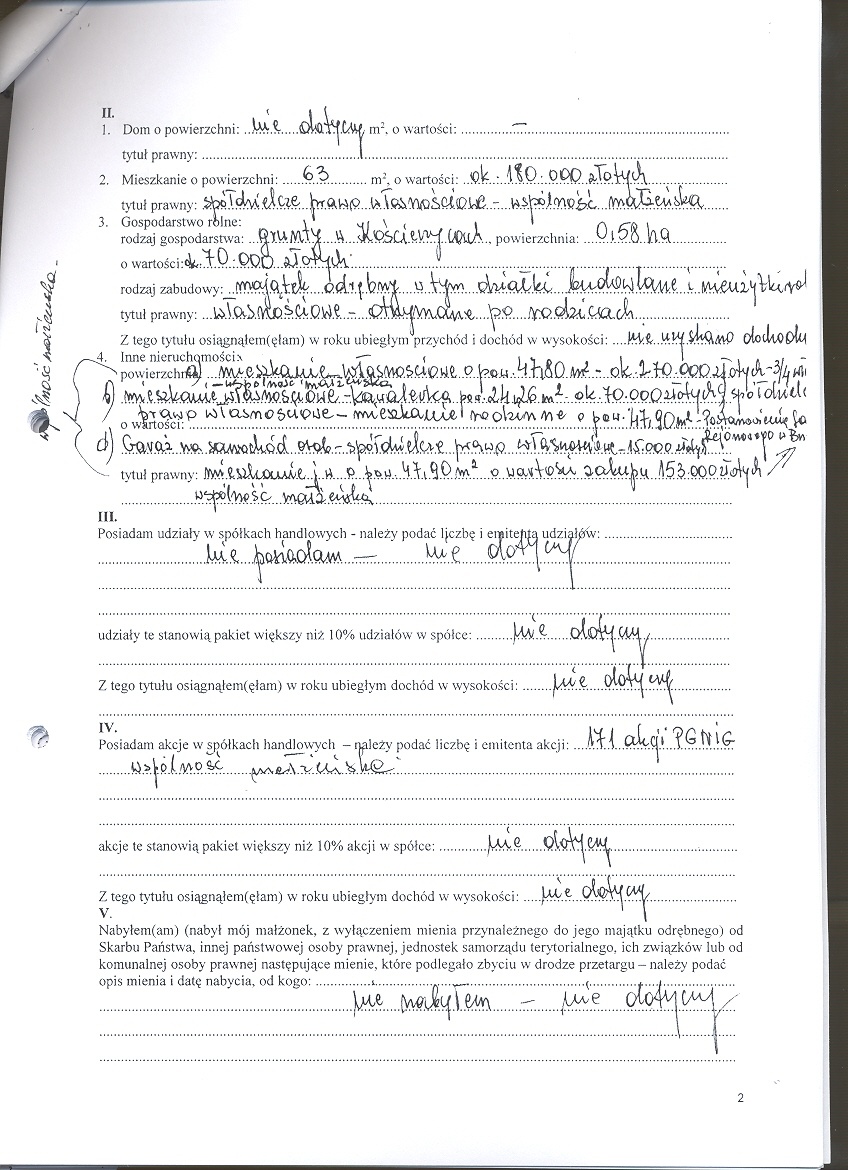 II.
1. Dom o powierzchni: nie dotyczy m², o wartości: –
tytuł prawny:
2. Mieszkanie o powierzchni: 63 m², o wartości: ok. 180.000 złotych
tytuł prawny: spółdzielcze prawo własnościowe – wspólność małżeńska
3. Gospodarstwo rolne:
rodzaj gospodarstwa: grunty w , powierzchnia: 0,58 ha
o wartości: ok 70.000 złotych
rodzaj zabudowy: majątek odrębny w tym działki budowlane i
tytuł prawny: własnościowe – otrzymane po rodzicach
Z tego tytułu osiągnąłem(ęłam) w roku ubiegłym przychód i dochód w wysokości: nie uzyskano dochodu
wspólność małżeńska –
4. Inne nieruchomości:
powierzchnia: a) mieszkanie własnościowe o pow. 47,80 m² – ok 270.000 złotych – 3/4
– wspólność małżeńska
b) mieszkanie własnościowe – kawalerka pow. 24,26 m² – ok. 70.000 złotych
prawo własnościowe – mieszkanie rodzinne o pow. 47,90 m² – Postanowienie
o wartości:
Rejonowego w
d) Garaż na samochód osob – spółdzielcze prawo własnościowe – 15.000 złotych
tytuł prawny: mieszkanie j w o pow. 47,90 m² o wartości zakupu 153.000 złotych
wspólność małżeńska
III.
Posiadam udziały w spółkach handlowych - należy podać liczbę i emitenta udziałów:
nie posiadam — nie dotyczy
udziały te stanowią pakiet większy niż 10% udziałów w spółce: nie dotyczy
Z tego tytułu osiągnąłem(ęłam) w roku ubiegłym dochód w wysokości: nie dotyczy
IV.
Posiadam akcje w spółkach handlowych – należy podać liczbę i emitenta akcji: 171 akcji PGNiG
wspólność małżeńska
akcje te stanowią pakiet większy niż 10% akcji w spółce: nie dotyczy
Z tego tytułu osiągnąłem(ęłam) w roku ubiegłym dochód w wysokości: nie dotyczy
V.
Nabyłem(am) (nabył mój małżonek, z wyłączeniem mienia przynależnego do jego majątku odrębnego) od
Skarbu Państwa, innej państwowej osoby prawnej, jednostek samorządu terytorialnego, ich związków lub od
komunalnej osoby prawnej następujące mienie, które podlegało zbyciu w drodze przetargu – należy podać
opis mienia i datę nabycia, od kogo:
nie nabyłem – nie dotyczy
2